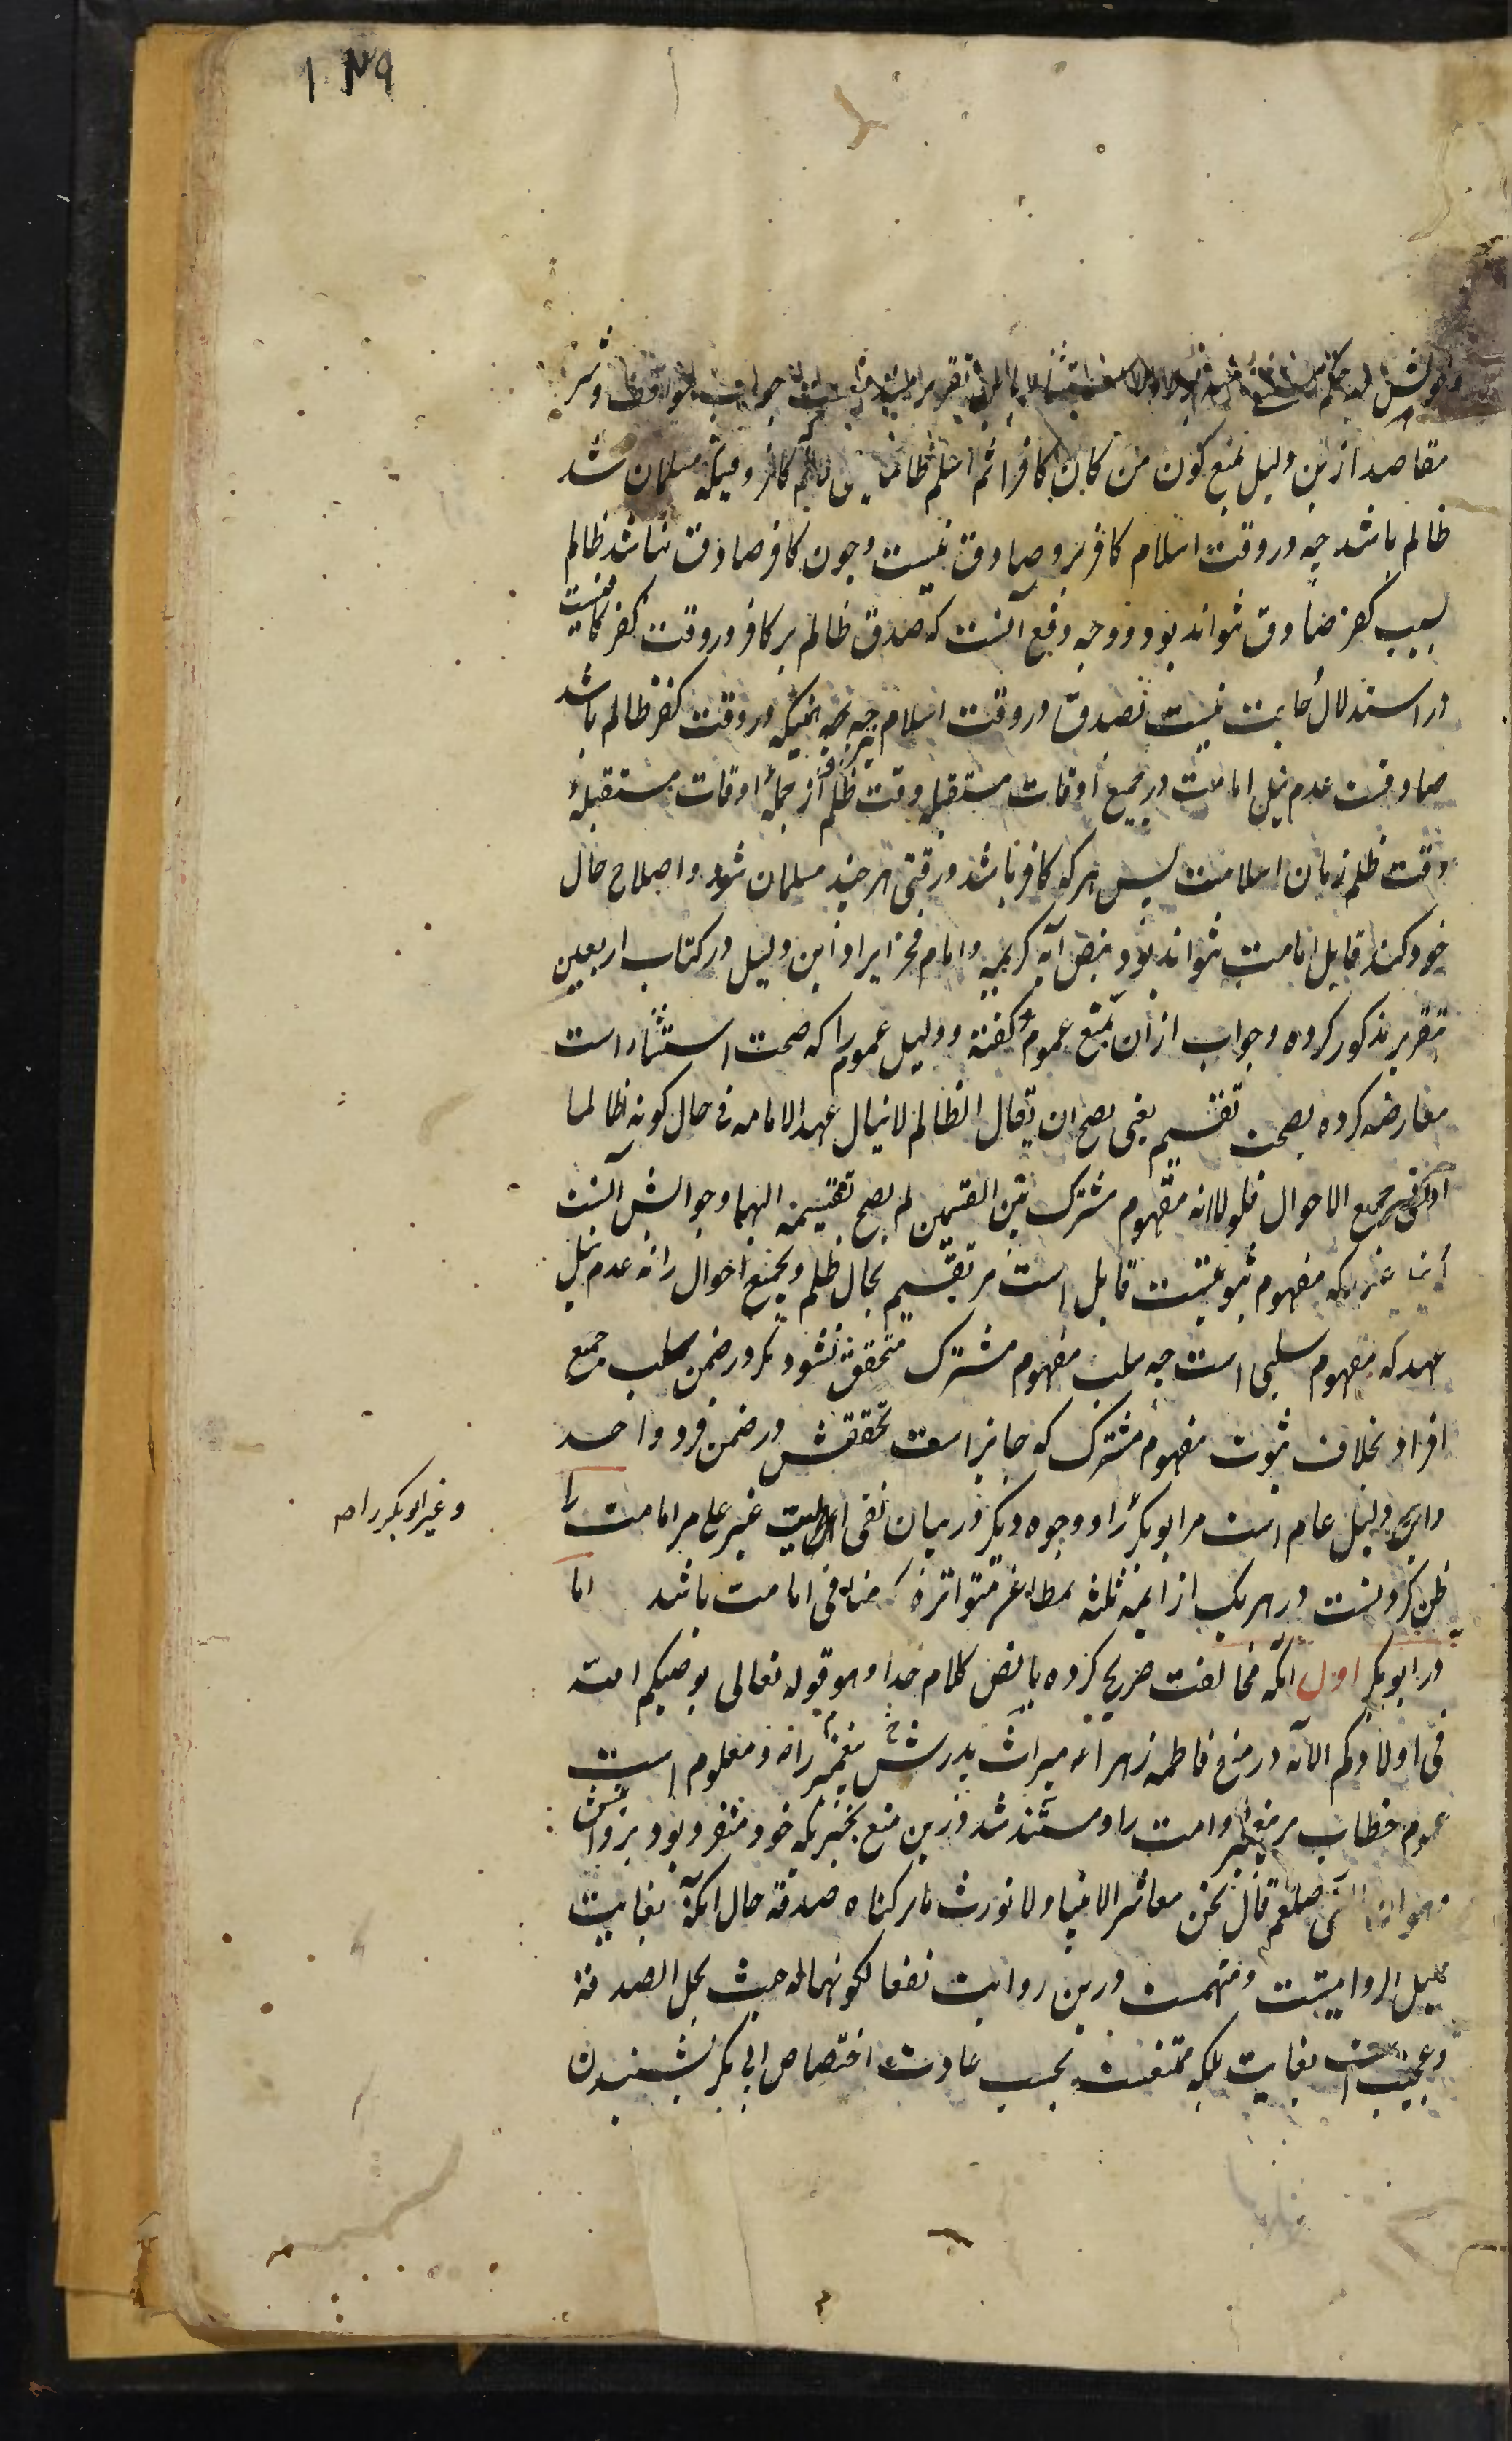 ۱۴۹
تقریر جواب مواقف و شرح
مقاصد ازین دلیل بمنع کون من کان کافرا ثم اسلم ظالما یعنی لانم که کافر وقتیکه مسلمان شد
ظالم باشد چه در وقت اسلام کافر برو صادق نیست و چون کافر صادق نباشد ظالم
بسبب کفر صادق نتواند بود و وجه دفع آنست که صدق ظالم بر کافر در وقت کفر کافیست
در استدلال حاجت نیست بصدق در وقت اسلام چه بر هر آنکه در وقت کفر ظالم باشد
صادقست عدم نیل امامت در جمیع اوقات مستقبله وقت ظلم و از جملهٔ اوقات مستقبلهٔ
وقت ظلم زمان اسلامست پس هر که کافر باشد در وقتی هر چند مسلمان شود و اصلاح حال
خود کند قابل امامت نتواند بود بنص آیه کریمه و امام فخر ایراد این دلیل در کتاب اربعین
بتقریر مذکور کرده و جواب از آن بمنع عموم گفته و دلیل عموم را که صحت استثناء است
معارضه کرده بصحت تقسیم یعنی یصح ان یقال الظالم لاینال عهد الامامه فی حال کونه ظالما
او فی جمیع الاحوال فلولا انه مفهوم مشترک بین القسمین لم یصح تقسیمه الیهما و جوابش آنست
که مفهوم ثبوتیست قابل است مر تقسیم بحال ظلم و بجمیع احوال را نه عدم نیل
عهد که مفهوم سلبی است چه سلب مفهوم مشترک متحقق نشود مگر در ضمن سلب جمیع
افراد بخلاف ثبوت مفهوم مشترک که جایز است تحققش در ضمن فرد واحد
و این دلیل عام است مر ابوبکر را و وجوه دیگر در بیان نفی اهلیت غیر علی مر امامت را
و غیر ابوبکر را صح
ظن کردنست در هر یک از ایمه ثلثه بمطاعن متواتره که منافی امامت باشد اما
در ابوبکر اول آنکه مخالفت صریح کرده با نص کلام خدا و هو قوله تعالی یوصیکم الله
فی اولادکم الآیه در منع فاطمه زهرا ع میراث پدرش پیغمبر را و معلوم است
عموم خطاب مر پیغمبر و امت را و مستند شد درین منع بخبریکه خود منفرد بود بروایتش
و هو ان النبی صلعم قال نحن معاشر الانبیاء لا نورث ما ترکناه صدقة حال آنکه بغایت
قلیل الروایتست و متهمست درین روایت نفعا لکونهما له حیث یحل الصدقة
و عجیب است بغایت بلکه ممتنعست بحسب عادت اختصاص ابی بکر بشنیدن